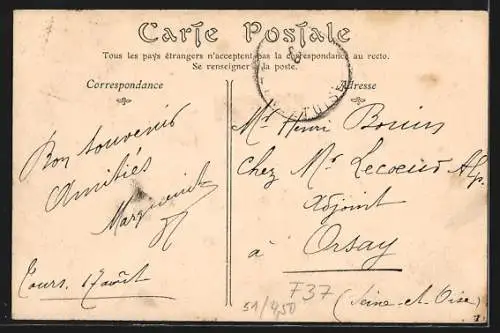 Carte Postale
Tous les pays étrangers n'acceptent pas la correspondance au recto.
Se renseigner à la poste.
Correspondance
Adresse
Bon souvenir
Amitiés
Tours. 17 août
Mr Henri
Chez Mr Lecoeur
Adjoint
à Orsay
(Seine-et-Oise)
737
51/450